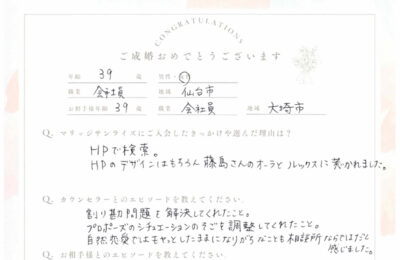 CONGRATULATIONS
ご成婚おめでとうございます
年齢 39 歳 男性・女性
職業 会社員 地域 仙台市
お相手様年齢 39 歳 職業 会社員 地域 大崎市
Q. マリッジサンライズにご入会したきっかけや選んだ理由は？
HPで検索。
HPのデザインはもちろん 藤島さんのオーラとルックスに惹かれました。
Q. カウンセラーとのエピソードを教えてください
割り勘問題を解決してくれたこと。
プロポーズのシチュエーションのそごを調整してくれたこと。
自然恋愛ではモヤッとしたままになりがちなことも相談所ならではだと
感じました。
Q. お相手様とのエピソードを教えてください